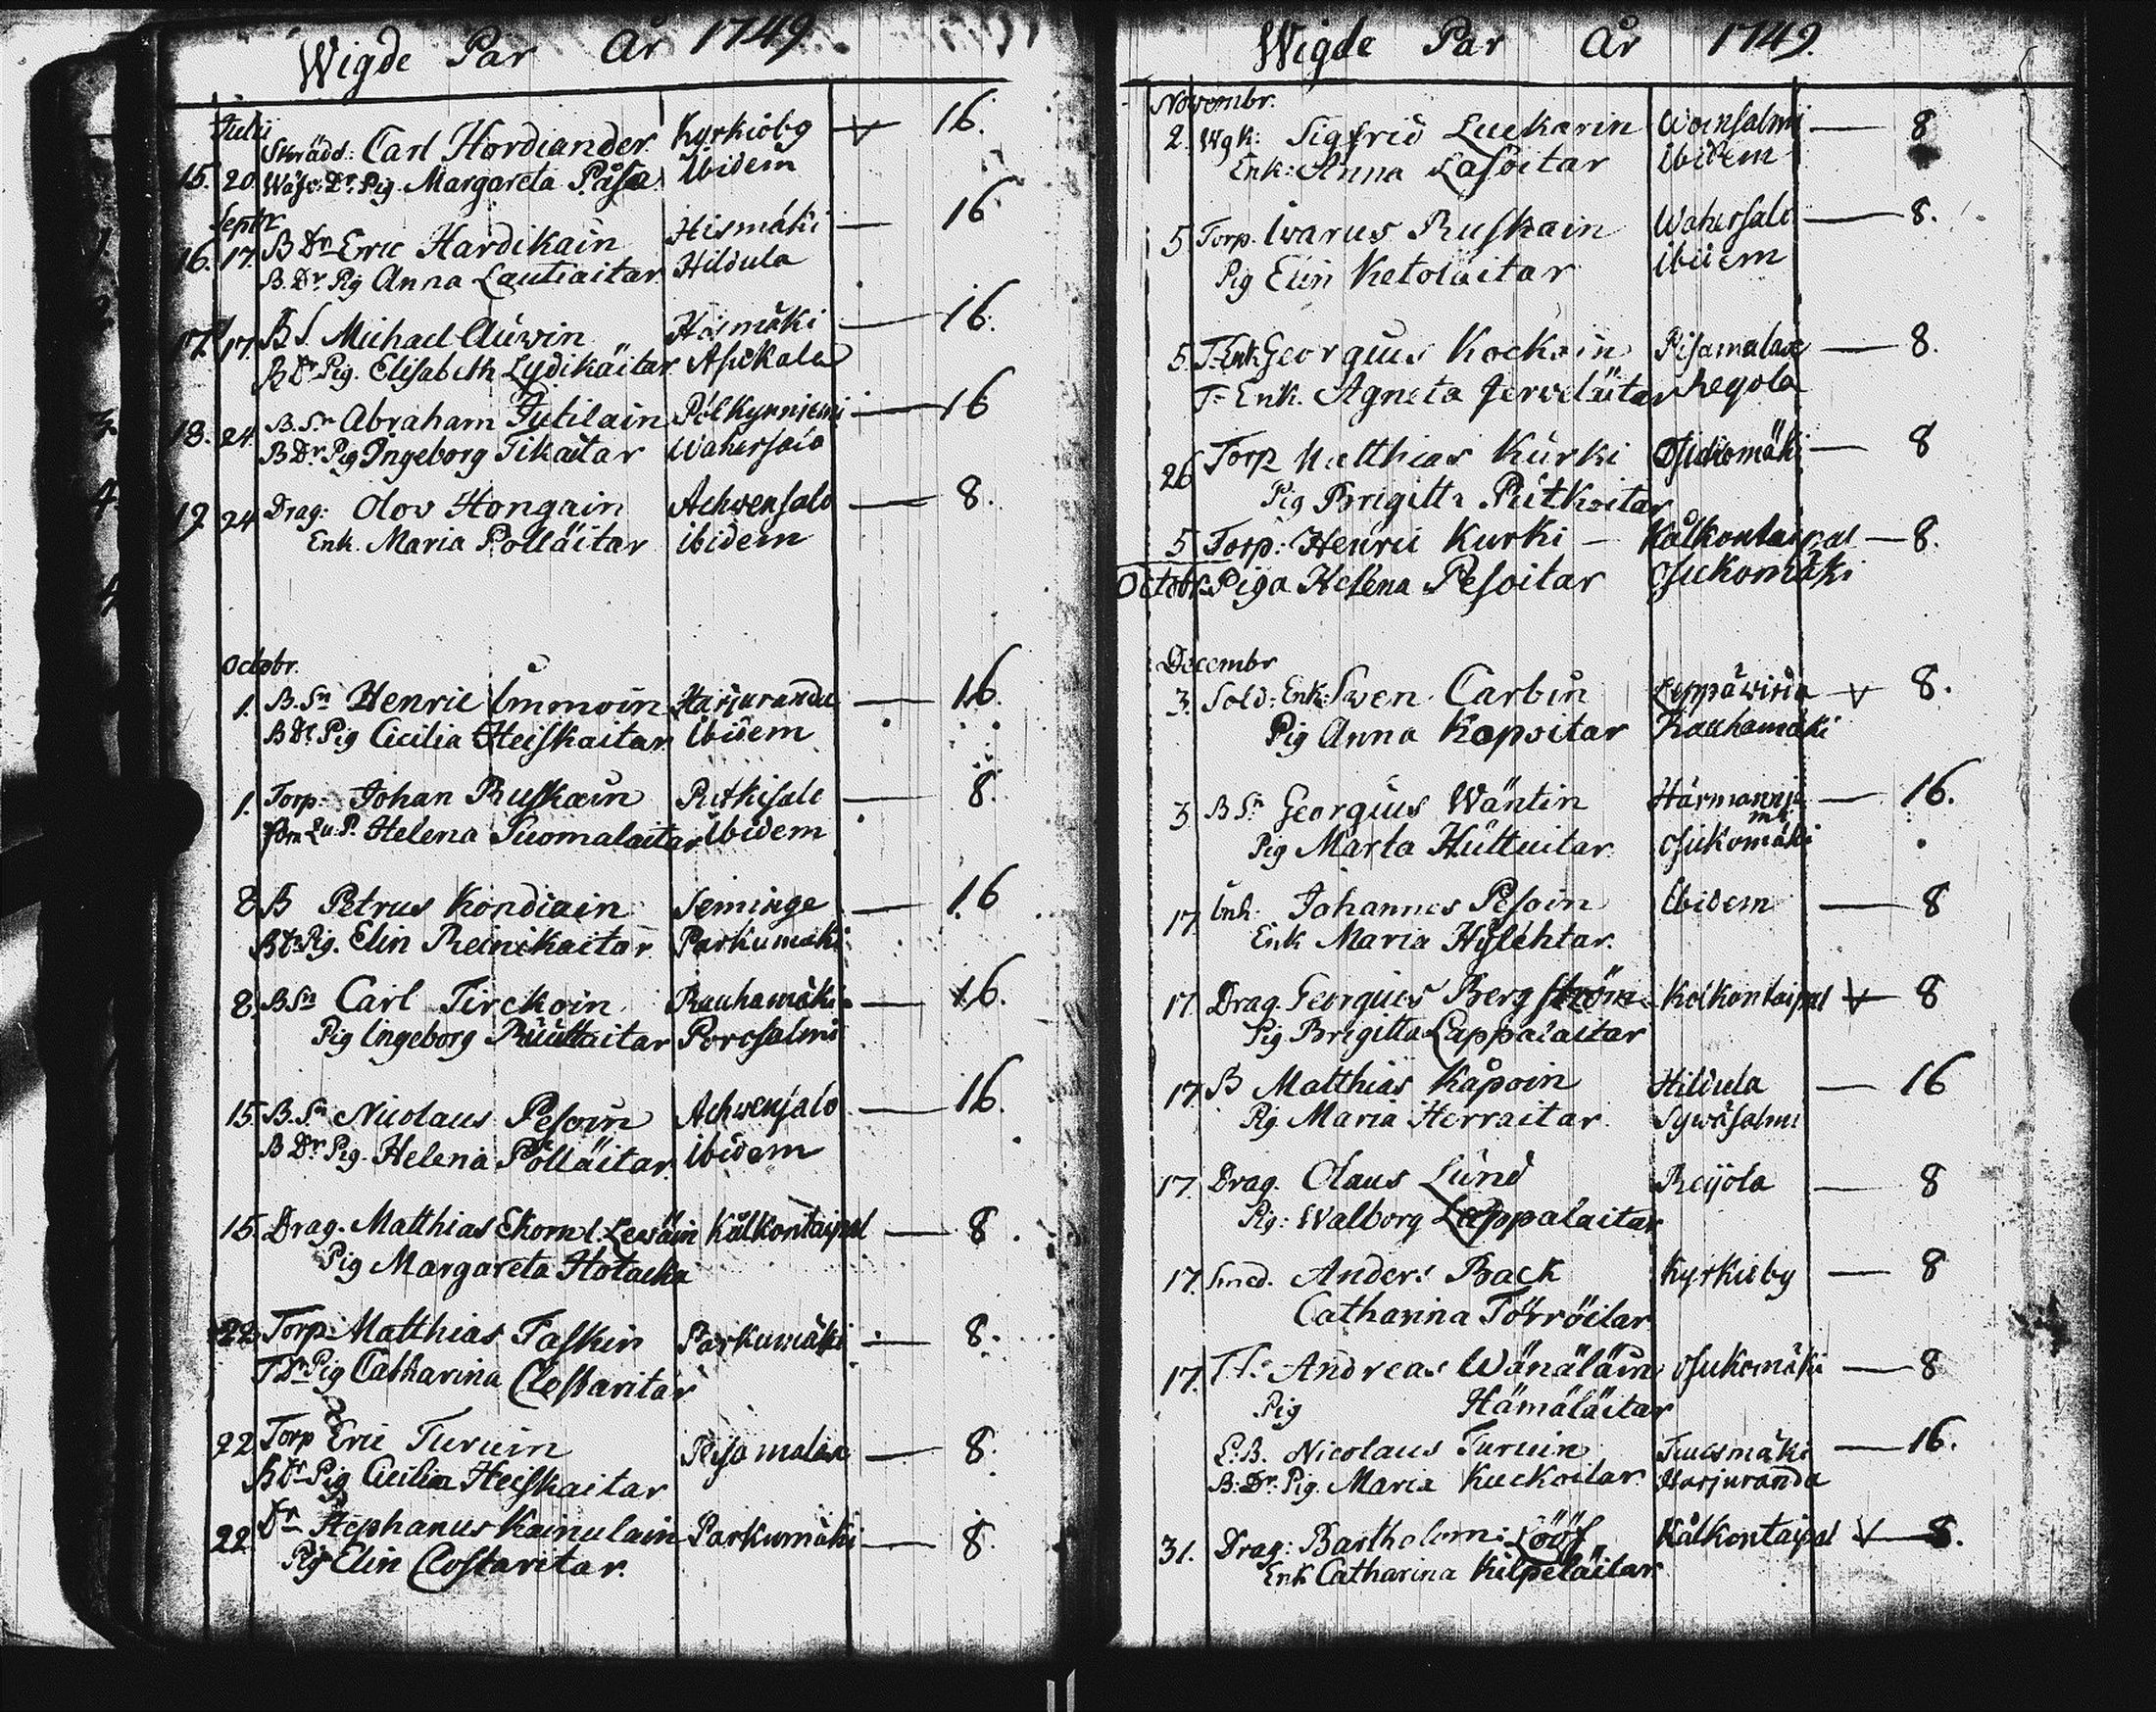 Wigde Par År 1749.
Julii
Skrädd: Carl Hordiander Kyrkioby 16.
15. 20. Pig. Margareta Påsa Ibidem
Septr
16. 17. B Sn Eric Hardikain Hismäki — 16
B. Dr Pig Anna Lautiaitar Hildula
17. 17. B S. Michael Auwin Hismäki — 16.
B Dr Pig. Elisabeth Lydikäitar
18. 24. B. Sn Abraham Jutilain Pölkynniemi — 16
B Dr Pig Ingeborg Tikaitar Wahersalo
19. 24 Drag: Olov Hongain Achvensalo — 8.
Enk. Maria Polläitar ibidem
Octobr.
1. B. Sn Henric Immoin Harjuranda — 16.
B Dr Pig Cicilia Heiskaitar Ibidem
1. Torp: Johan Ruskain Rutkisalo — 8.
Helena Suomalaitar Ibidem
8. B Petrus Kondiain Seminge — 16
B Dr Pig. Elin Reinikaitar Parkumäki
8. B Sn Carl Tirckoin Rauhamäki — 16.
Pig Ingeborg Porosalmi
15. B. Sn Nicolaus Pesoin Achvensalo — 16.
B Dr Pig. Helena Polläitar Ibidem
15. Drag. Matthias Ekom l. Lewäin Kålkontaipal — 8.
Pig Margareta Hotacka
22. Torp: Matthias Faskin Parkumäki — 8.
T Dr Pig Catharina Clostaritar
22. Torp Eric Turuin Pisamalax — 8.
B Dr Pig Cicilia Heiskaitar
22. Dn Stephanus Kainulain Parkumäki — 8.
Pig Elin Clostaritar.
Wigde Par År 1749.
Novembr.
2. Sigfrid Luckarin Woinsalmi — 8
Enk: Anna Lasoitar Ibidem
5. Torp. Ivarus Ruskain Wahersalo — 8.
Pig Elin Ketoläitar Ibidem
5. T-Enk Georgius Kockoin Pisamalax — 8.
T-Enk. Agneta Jerveläitar Regola
26 Torp Matthias Kurki Osickomäki — 8
Pig Brigitta Putkoitar
5 Torp: Henric Kurki — Kålkontaipal — 8.
Octobr. Piga Helena Pesoitar Osickomäki
Decembr
3. Sold: Enk: Swen Carbin Leppäwirda 8.
Pig Anna Kopoitar Rauhamäki
3 B Sn Georgius Wäntin — 16.
Pig Marta Hüttuitar Osickomäki
17. Inh: Johannes Pesoin Ibidem — 8
Enk Maria Hylehtar.
17. Drag. Georgius Bergström Kolkontaipal 8
Pig Brigitta Lappalaitar
17. B Matthias Kåpoin Hildula — 16
Pig Maria Herraitar. Sywäsalmi
17. Drag. Olaus Lund Reijola — 8
Pig: Walborg Lappalaitar
17. Smed. Anders Back Kyrkioby — 8
Catharina Törröitar
17. T S: Andreas Wänäläin Osickomäki — 8
Pig Hämäläitar
L. B. Nicolaus Turuin Tuusmäki — 16.
B. Dr. Pig. Maria Kuckoitar Harjuranda
31. Drag: Bartholom: Lööf Kålkontaipal 8.
Enk Catharina Kilpeläitar